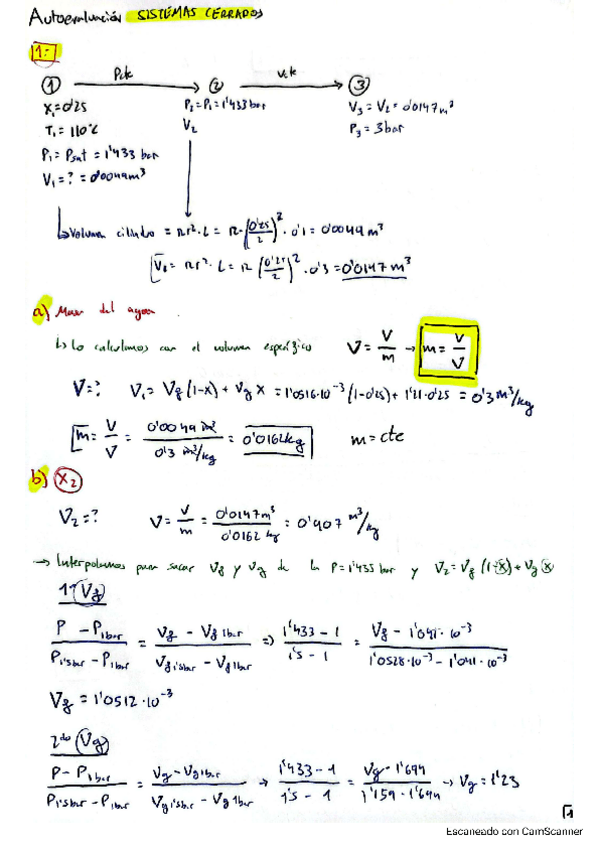 Autoevaluación SISTEMAS CERRADOS
1:
① P cte → ② v cte → ③
X₁=0'25 P₂=P₁=1'433 bar V₃ = V₂ = 0'0147 m³
T₁ = 110°C V₂ P₃ = 3 bar
P₁ = Psat = 1'433 bar
V₁ = ? = 0'0049 m³
↳ Volumen cilindro = πr²·L = π·(0'25/2)²·0'1 = 0'0049 m³
V₂ = πr²·L = π(0'25/2)²·0'3 = 0'0147 m³
a) Masa del agua.
↳ Lo calculamos con el volumen específico V = V/m → m = V/V
V=? V₁ = Vf(1-x) + Vg x = 1'0516·10⁻³(1-0'25) + 1'21·0'25 = 0'3 m³/kg
m = V/V = 0'0049 m³ / 0'3 m³/kg = 0'0162 kg m = cte
b) X₂
V₂ = ? V = V/m = 0'0147 m³ / 0'0162 kg = 0'907 m³/kg
→ Interpolamos para sacar Vf y Vg de la P = 1'433 bar y V₂ = Vf (1-x) + Vg x
1º Vf
P - P1bar / P1'5bar - P1bar = Vf - Vf1bar / Vf1'5bar - Vf1bar => 1'433 - 1 / 1'5 - 1 = Vf - 1'041·10⁻³ / 1'0528·10⁻³ - 1'041·10⁻³
Vf = 1'0512·10⁻³
2do Vg
P - P1bar / P1'5bar - P1bar = Vg - Vg1bar / Vg1'5bar - Vg1bar → 1'433 - 1 / 1'5 - 1 = Vg - 1'694 / 1'159 - 1'694 → Vg = 1'23
1
Escaneado con CamScanner